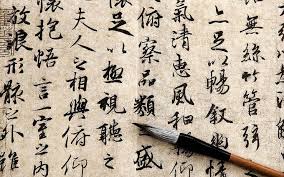 無絲竹管弦
亦足以暢叙幽情
氣清惠風和暢
俯察品類之盛
懷足以極視聽之
夫人之相與俯仰
懷抱悟言一室之内
放浪形骸之外雖